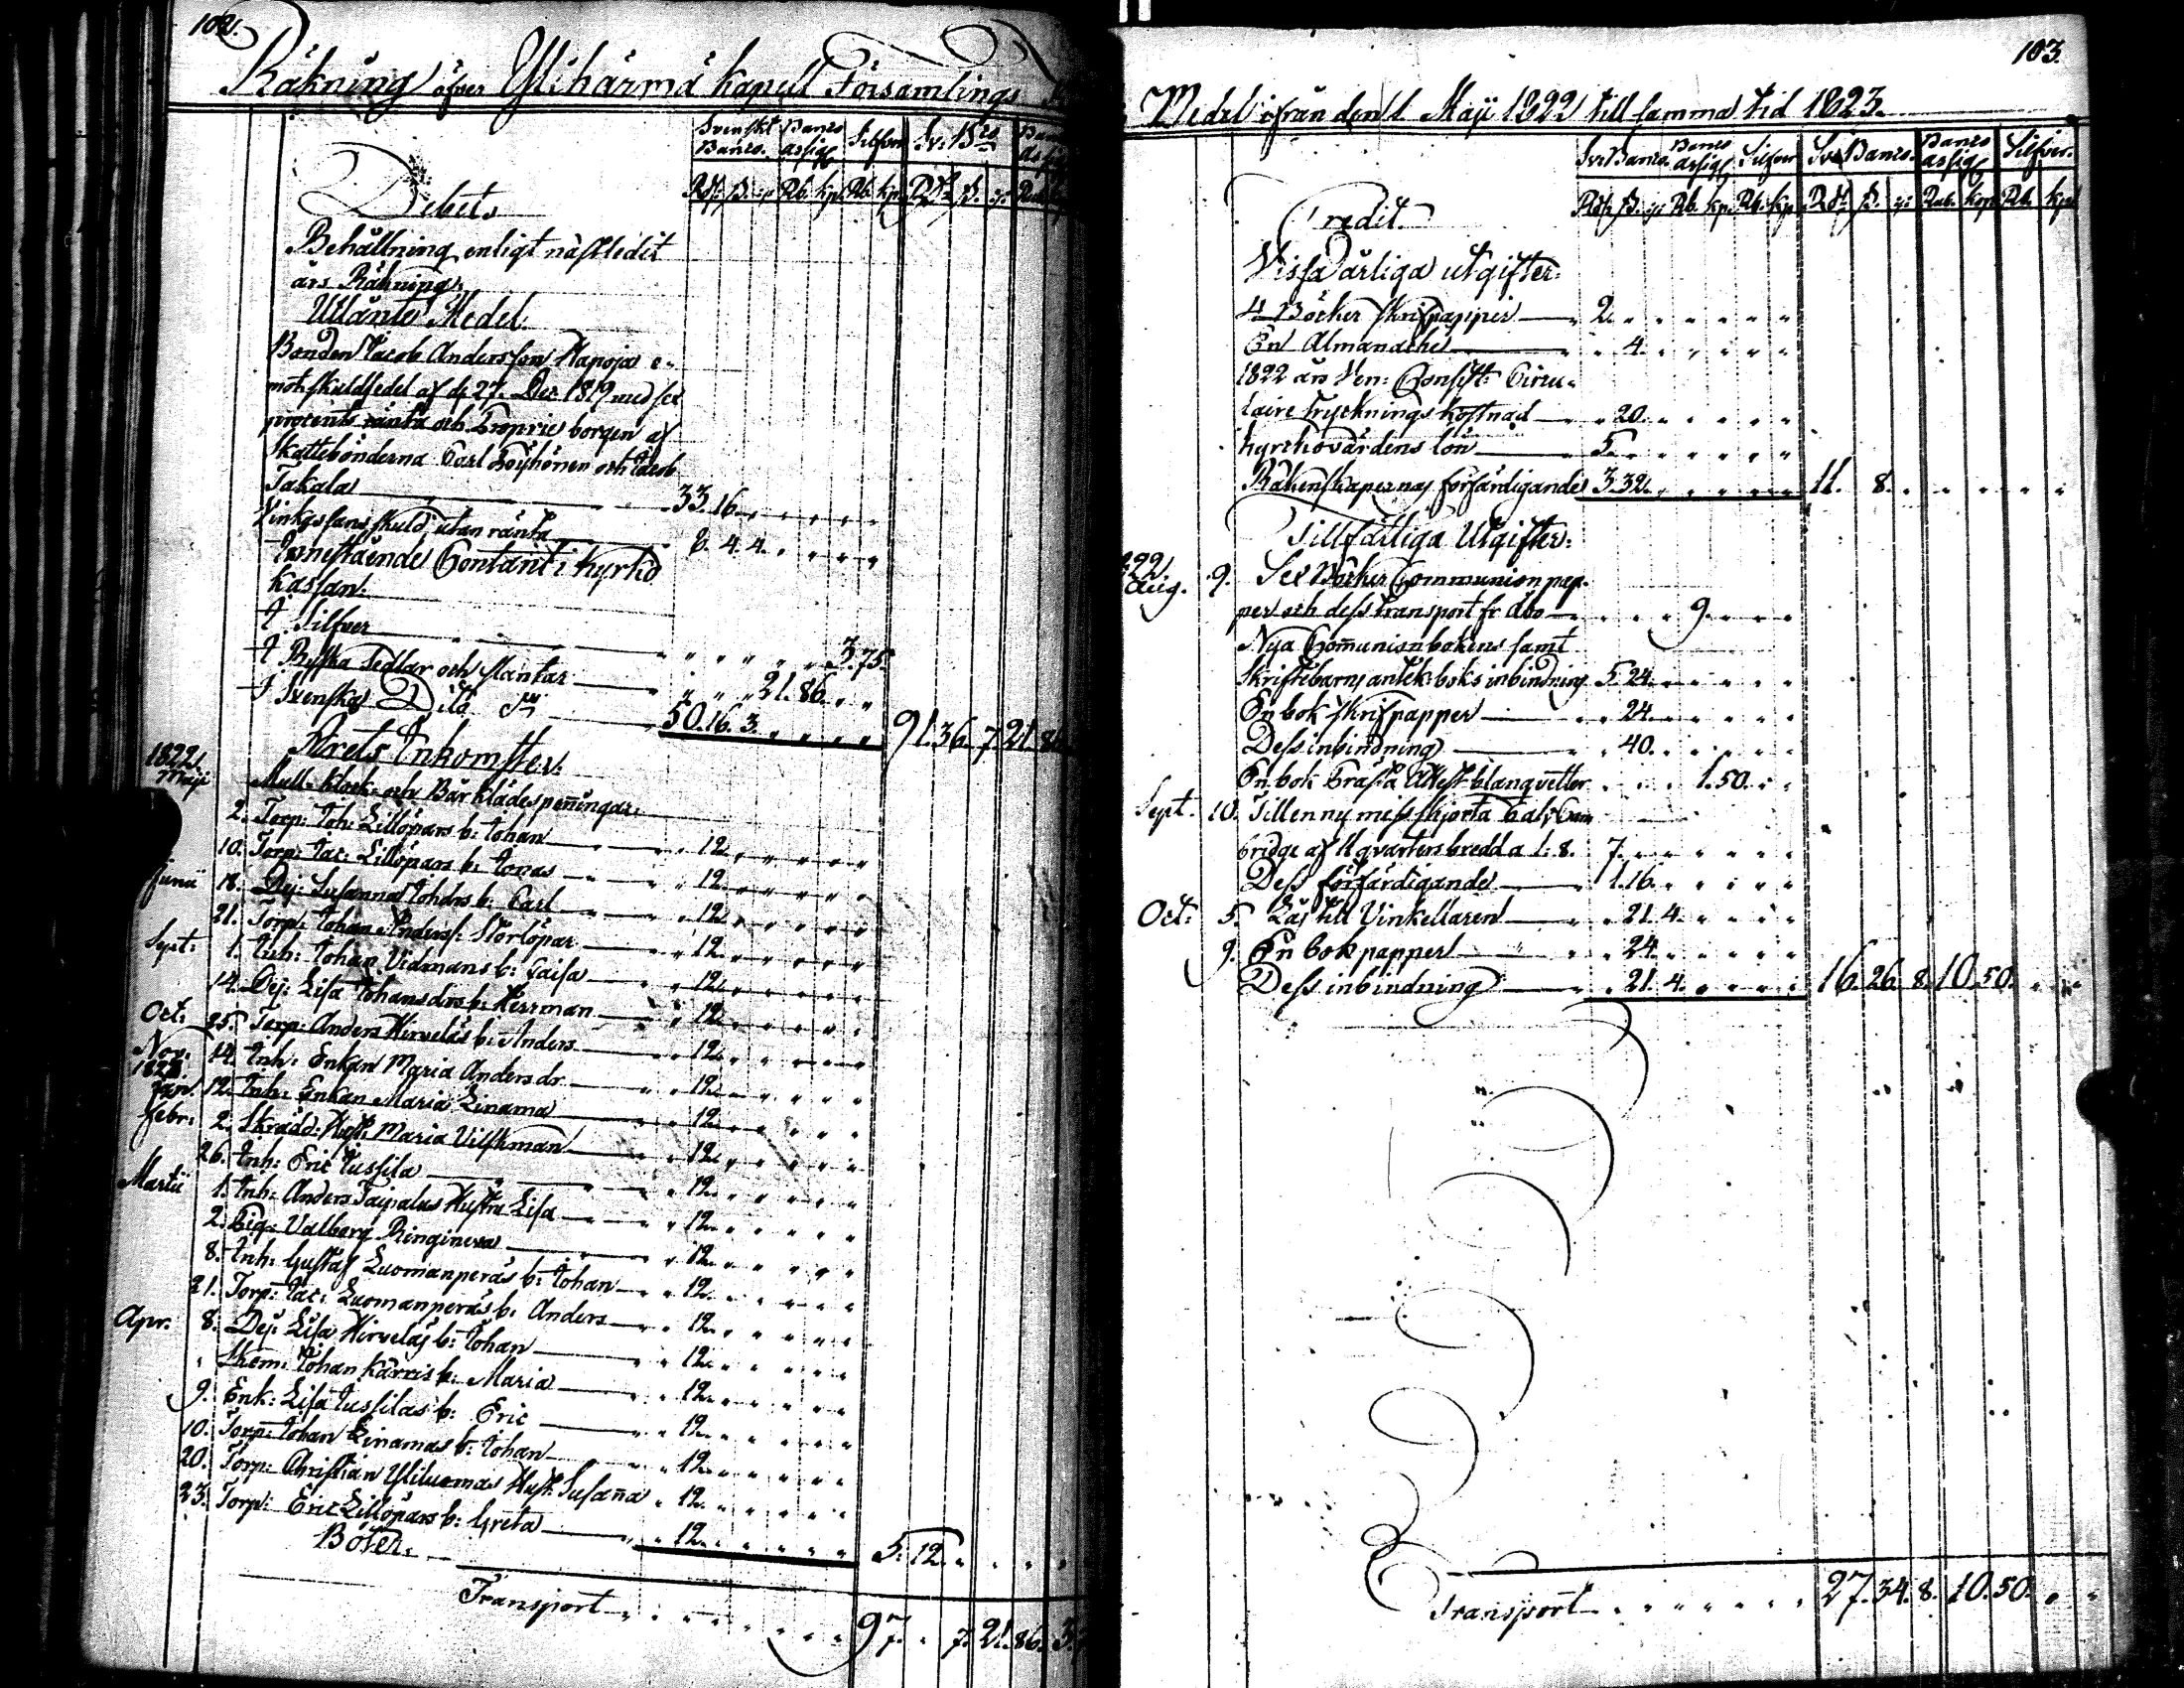 102.
Räkning öfver Ylihärmä Kapell Församlings
Svenskt Banco. Banco assig Silfver Sv: Bco
Rdr ß. rp Rb. kp. Rb. kp. Rdr ß. rp
Debet.
Behållning enligt nästledit
års Räkning.
Utlånte Medel.
Bonden Jacob Andersson Hapoja e-
mot skuldsedel af d. 27. Dec 1819 med sex
procents ränta och Proprie borgen af
Skattebönderna Carl Köyhönen och Jacob
Takala 33. 16.
Vinkassans skuld, utan ränta 8. 4. 4.
Innestående Contant i kyrko
kassan.
I Silfver 3. 75.
I Ryska Sedlar och slantar 21. 86.
I Svenska Dito 50. 16. 3. 91. 36. 7. 21. 86
Årets Inkomster.
1822.
Maji Mull- klock- och Bårklädespenningar.
2. Torp: Joh: Lillöpars b: Johan 12.
10. Torp: Jac: Lillöpars b: Jonas 12.
Junii 18. Dej: Susanna Johdrs b: Carl 12.
21. Torp: Johan Anderss: Storlöpar 12.
Sept: 1. Inh: Johan Vidmans b: Caisa 12.
14. Dej: Lisa Johansdrs b: Herrman 12.
Oct. 25. Torp: Anders Hirveläs b: Anders 12.
Nov. 14. Inh: Enkan Maria Andersdr 12.
1823.
Jan. 12. Inh: Enkan Maria Linama 12.
Febr: 2. Skrädd: Hust: Maria Vilskman 12.
26. Inh: Eric Jussila 12.
Martii 1. Inh: Anders Taipalus Hustru Lisa 12.
2. Pig: Valborg Ringineva 12.
8. Inh: Gustaf Luomanperäs b: Johan 12.
21. Torp: Jac: Luomanperäs b: Anders 12.
Apr. 8. Dej: Lisa Hirveläs b: Johan 12.
" Skom: Johan Kärris b: Maria 12.
9. Enk: Lisa Jussilas b: Eric 12.
10. Torp: Johan Linamas b: Johan 12.
20. Torp: Christian Yliluomas Hust: Susanna 12.
23. Torp: Eric Lillöpars b: Greta 12. 5. 12.
Böter.
Transport 97. " 7. 21. 86. 3
103.
Medel ifrån den 1 Maji 1822 till samma tid 1823.
Sv: Banco. Banco assig Silfver Sv: Banco. Banco assig Silfver.
Rdr ß. rp Rb. kp. Rb. kp. Rdr ß. rp Rub. kop Rb. kp
Credit.
Vissa årliga utgifter.
4 Böcker skrifpapper 2.
En Almanache 4.
1822 års Ven: Consist: Circu-
laire trycknings kostnad 20.
Kyrkovärdens lön 5.
Räkenskapernas förfärdigande 3. 32. 11. 8.
Tillfälliga Utgifter.
1822
Aug. 9. Sex Böcker Communion pap-
per och dess transport fr. Åbo 9.
Nya Communionbokens samt
Skriftebarns antek: boks inbindning 5. 24.
En bok skrifpapper 24.
Dess inbindning 40.
En bok Attest blanquetter 1. 50.
Sept. 10. Till en ny messskjorta
bridge af 11 qvarters bredd a 1: 8. 7.
Dess förfärdigande 1. 16.
Oct: 5. Lås till Vinkellaren 21. 4.
9. En bok papper 24.
Dess inbindning 21. 4. 16. 26. 8. 10. 50.
Transport 27. 34. 8. 10. 50.